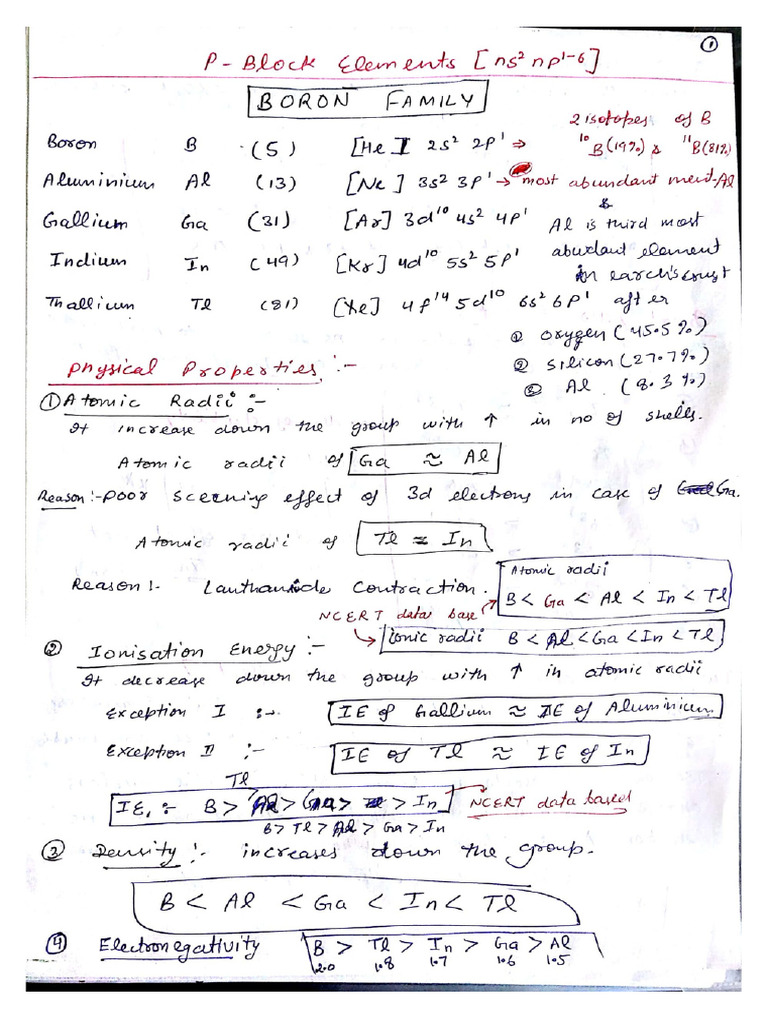 ①
P-Block Elements [ns² np¹⁻⁶]
BORON FAMILY
2 isotopes of B
Boron B (5) [He] 2s² 2p¹ ⇒ ¹⁰B(19%) & ¹¹B(81%)
Aluminium Al (13) [Ne] 3s² 3p¹ → most abundant metal-Al
&
Gallium Ga (31) [Ar] 3d¹⁰ 4s² 4p¹ Al is third most
abundant element
Indium In (49) [Kr] 4d¹⁰ 5s² 5p¹ in earth's crust
Thallium Tl (81) [Xe] 4f¹⁴ 5d¹⁰ 6s² 6p¹ after
① oxygen (45.5%)
② silicon (27.7%)
③ Al (8.3%)
Physical Properties :-
① Atomic Radii :-
It increase down the group with ↑ in no of shells.
Atomic radii of Ga ≈ Al
Reason :- Poor sceening effect of 3d electrons in case of Ga.
Atomic radii of Tl ≈ In
Reason :- Lanthanide Contraction.
Atomic radii
B < Ga < Al < In < Tl
NCERT data base
ionic radii B < Al < Ga < In < Tl
② Ionisation Energy :-
It decrease down the group with ↑ in atomic radii
Exception I :- IE of Gallium ≈ IE of Aluminium
Exception II :- IE of Tl ≈ IE of In
Tl
IE₁ :- B > Al > Ga > > In NCERT data based
B > Tl > Al > Ga > In
③ Density :- increases down the group.
B < Al < Ga < In < Tl
④ Electronegativity B > Tl > In > Ga > Al
2.0 1.8 1.7 1.6 1.5